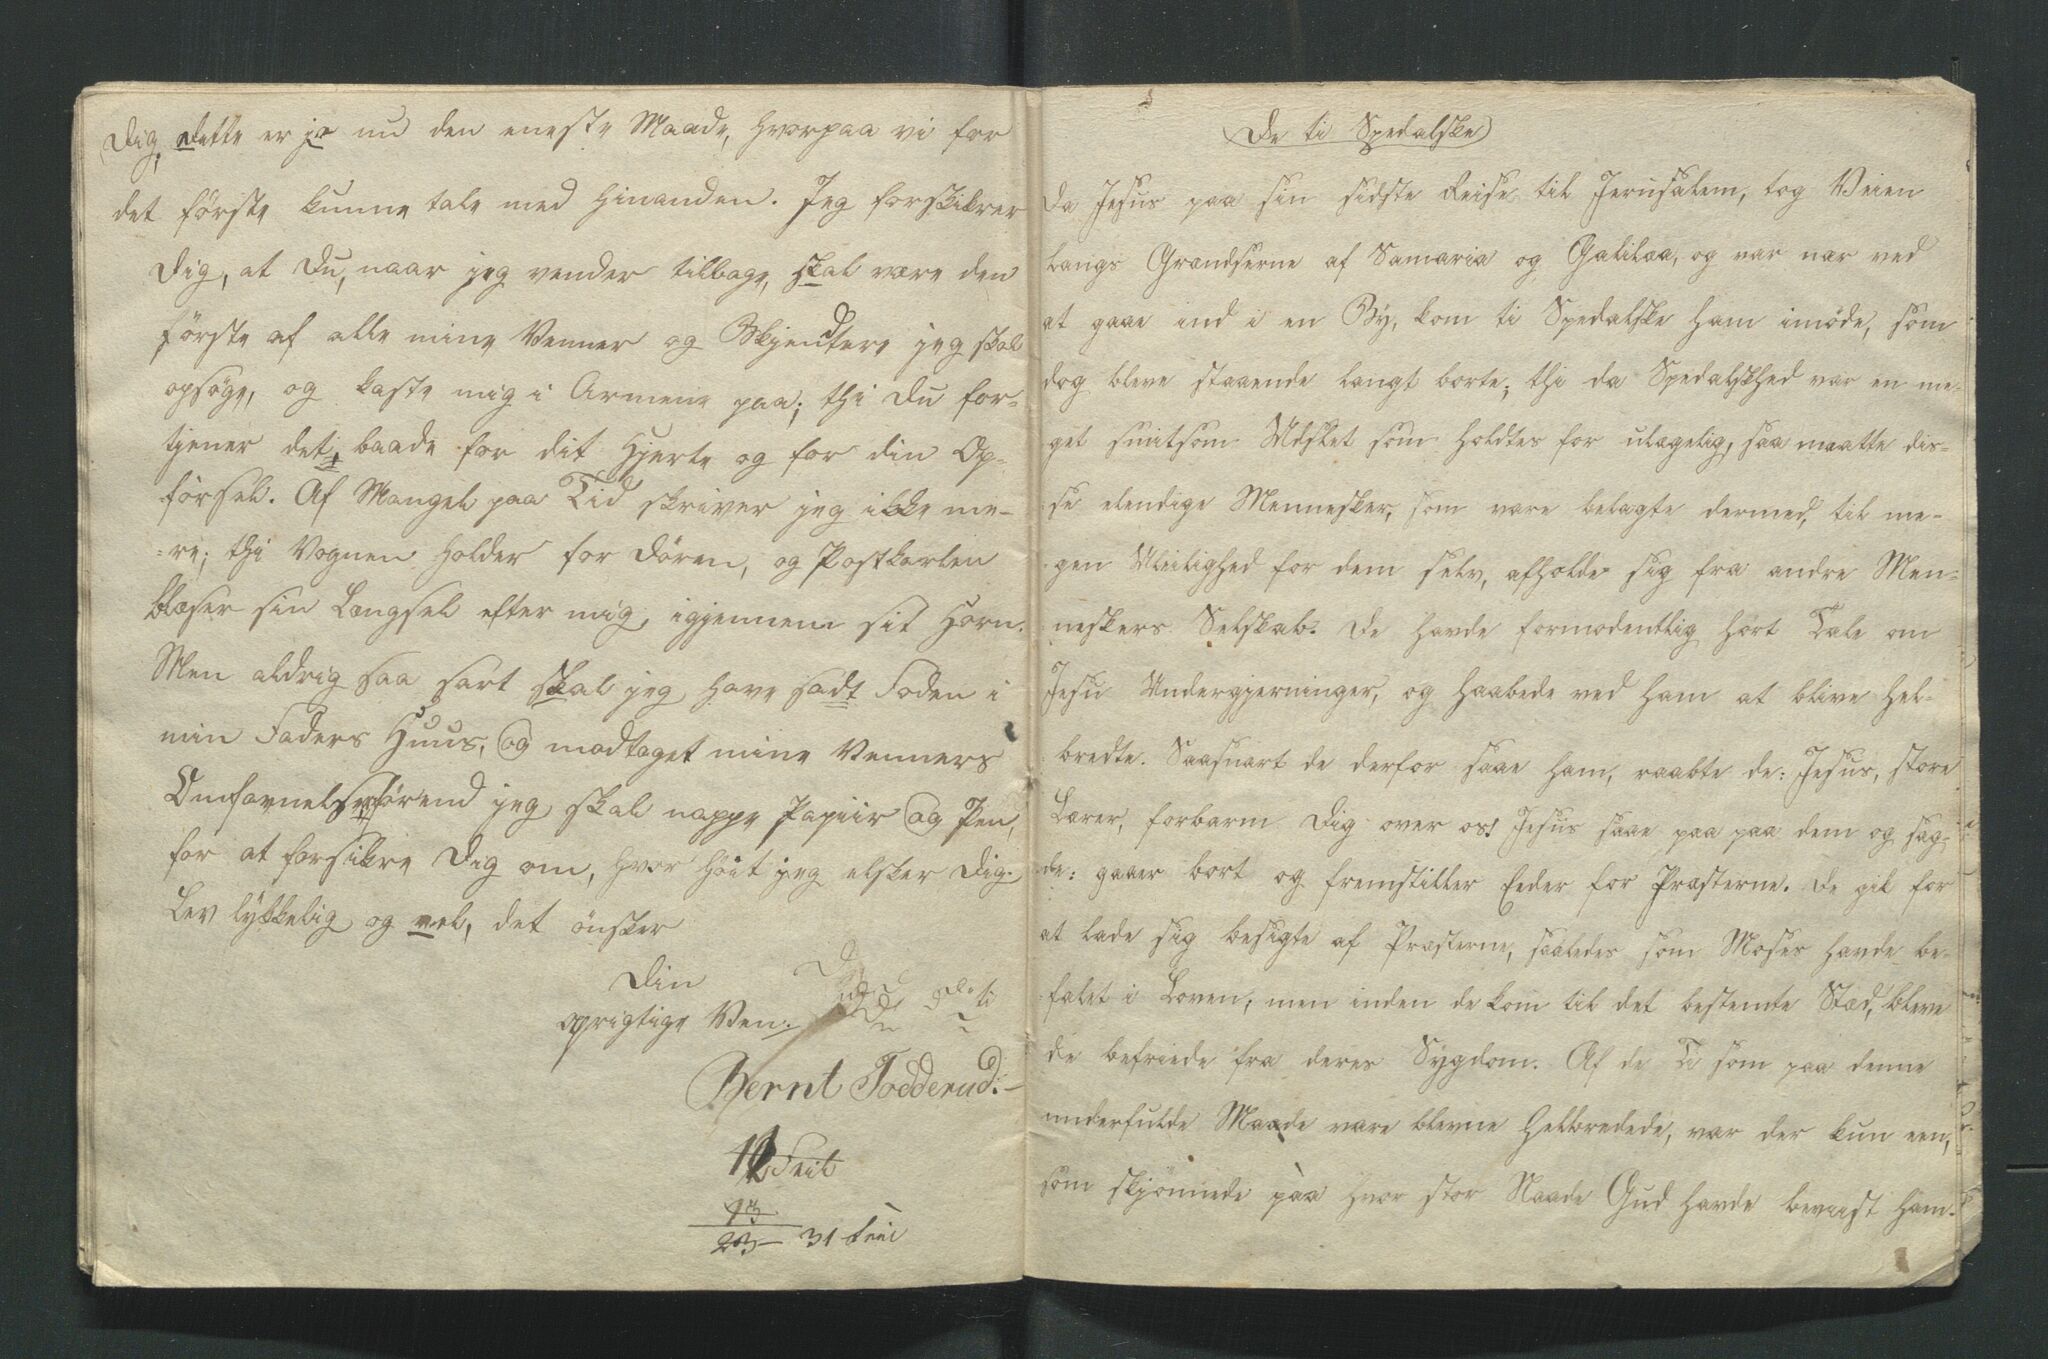 Dig, dette er jo nu den eneste Maade, hvorpaa vi for
det förste kunne tale med hinanden. Jeg forsikrer
Dig, at Du, naar jeg vender tilbage, skal være den
förste af alle mine Venner og Bekjendtere jeg skal
opsøge, og kaste mig i Armene paa; thi Du for-
tjener det, baade for dit Hjerte og for din Op-
försel. Af Mangel paa Tid skriver jeg ikke me-
-re; thi Vognen holder for Dören, og Postkarlen
blæser sin Længsel efter mig, igjennem sit Horn.
Men aldrig saa snart skal jeg have sadt Foden i
min Faders Huus, og modtaget mine Venners
Omfavnelse, förend jeg skal nappe Papiir og Pen,
for at forsikre Dig om, hvor höit jeg elsker Dig.
Lev lykkelig og vel, det önsker
Din
oprigtige Ven.
Bernt Todderud.
12 Feil
13
23 — 31 Feil
De ti Spedalske
Da Jesus paa sin sidste Reise til Jerusalem, tog Veien
langs Grændserne af Samaria og Galilæa, og var nær ved
at gaae ind i en By, kom ti Spedalske ham imöde, som
dog bleve staaende langt borte; thi da Spedalskhed var en me-
get smitsom Udslet som holdtes for ulægelig, saa maatte dis-
se elendige Mennesker, som vare belagte dermed, til me-
gen Uleilighed for dem selv, afholde sig fra andre Men-
neskers Selskab. De havde formodentlig hört Tale om
Jesu Undergjerninger, og haabede ved ham at blive hel-
bredte. Saasnart de derfor saae ham, raabte de: Jesus, store
Lærer, forbarm Dig over os! Jesus saae paa paa dem og sag-
de: gaaer bort og fremstiller Eeder for Præsterne. De gik for
at lade sig besigte af Præsterne, saaledes som Moses havde be-
falet i Loven; men inden de kom til det bestemte Stæd, bleve
de befriede fra deres Sygdom. Af de Ti som paa denne
underfulde Maade vare blevne helbredede, var der kun een,
som skjönnede paa hvor stor Naade Gud havde beviist ham.